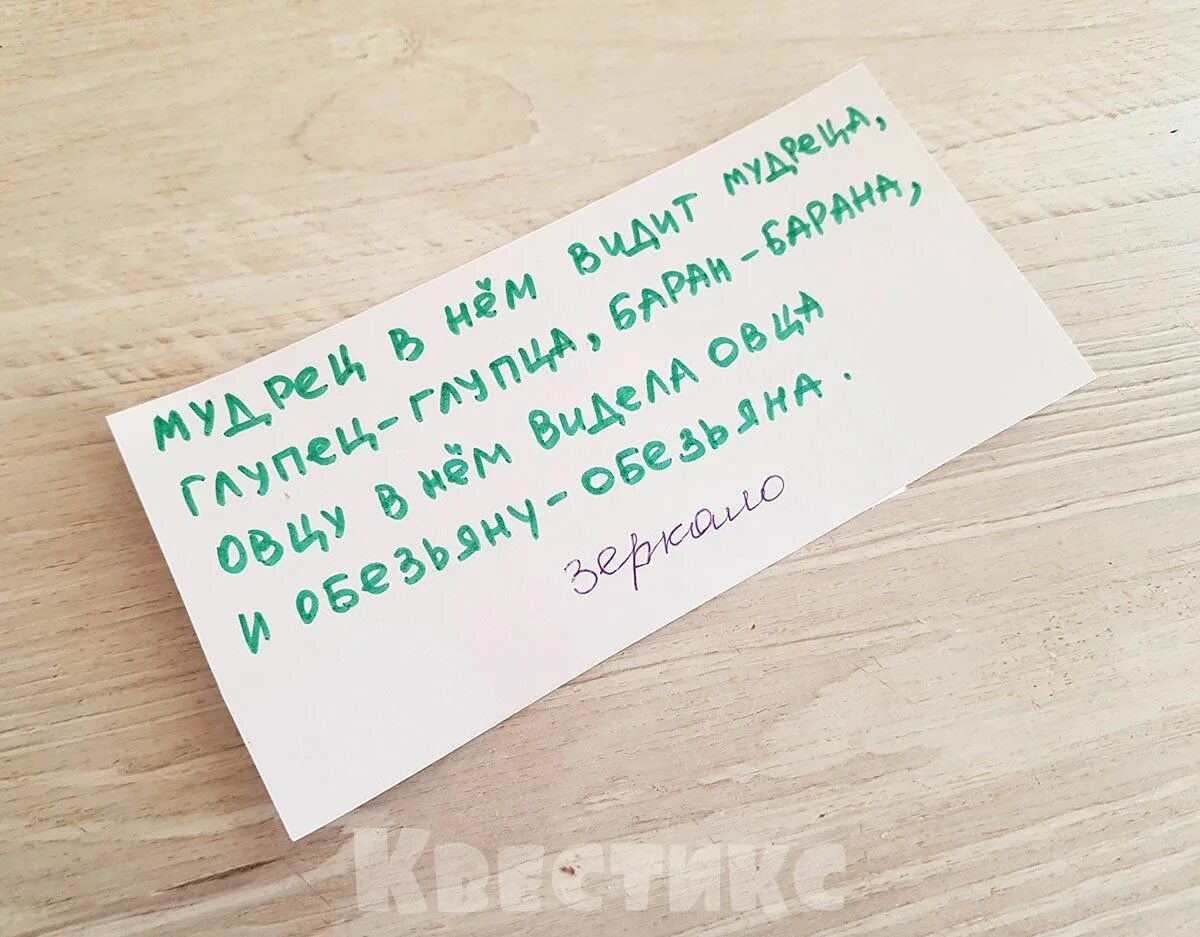 МУДРЕЦ В НЁМ ВИДИТ МУДРЕЦА,
ГЛУПЕЦ-ГЛУПЦА, БАРАН-БАРАНА,
ОВЦУ В НЁМ ВИДЕЛА ОВЦА
И ОБЕЗЬЯНУ-ОБЕЗЬЯНА.
зеркало
КВЕСТИКС